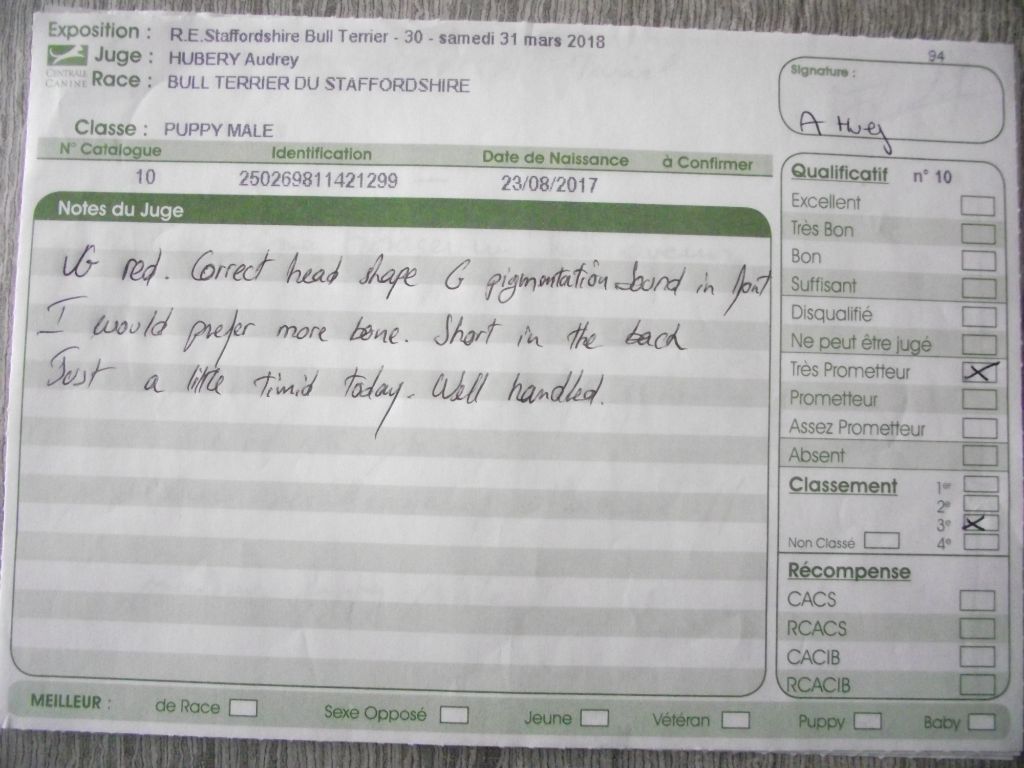 Exposition : R.E.Staffordshire Bull Terrier - 30 - samedi 31 mars 2018
Juge : HUBERY Audrey
CENTRALE CANINE
Race : BULL TERRIER DU STAFFORDSHIRE
Classe : PUPPY MALE
N° Catalogue Identification Date de Naissance à Confirmer
10 250269811421299 23/08/2017
Notes du Juge
VG red. Correct head shape G pigmentation sound in front
I would prefer more bone. Short in the back
Just a little timid today. Well handled.
94
Signature :
Qualificatif n° 10
Excellent
Très Bon
Bon
Suffisant
Disqualifié
Ne peut être jugé
Très Prometteur X
Prometteur
Assez Prometteur
Absent
Classement 1er
2e
3e X
Non Classé 4e
Récompense
CACS
RCACS
CACIB
RCACIB
MEILLEUR : de Race Sexe Opposé Jeune Vétéran Puppy Baby